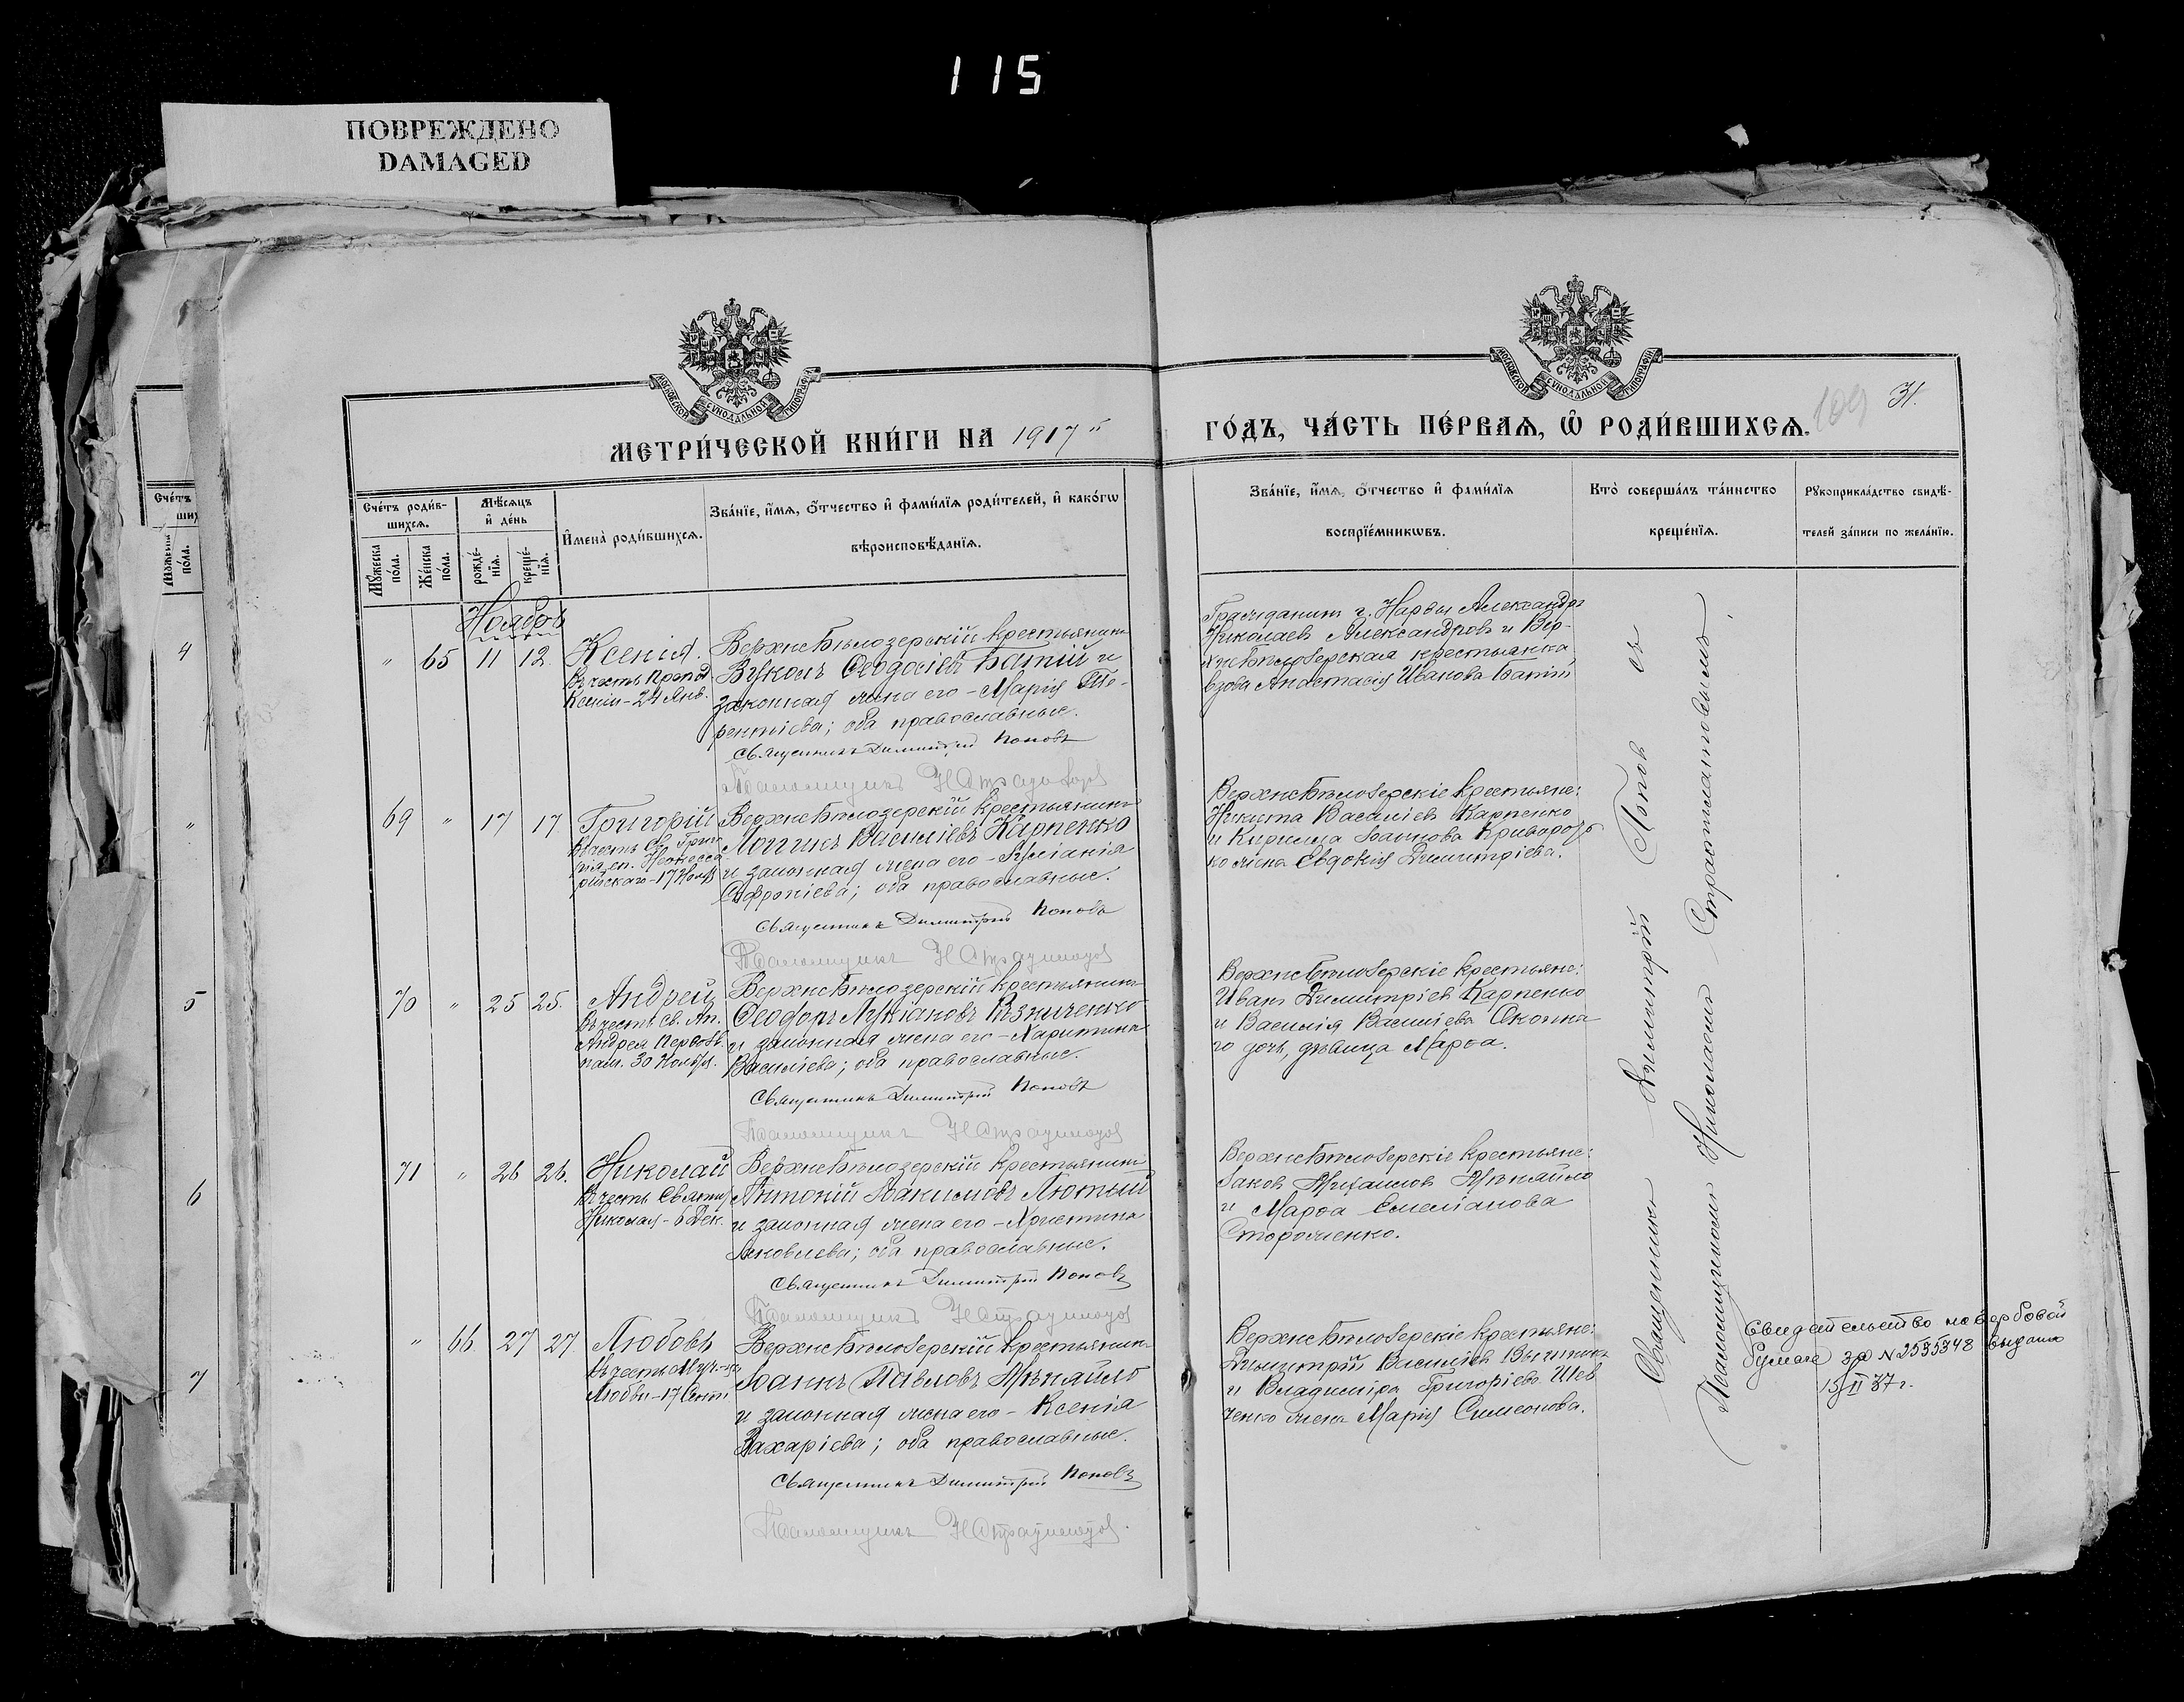 115
ПОВРЕЖДЕНО
DAMAGED
МЕТРИ́ЧЕСКОЙ КНИ́ГИ НА 1917
ГО́ДЪ, ЧА́СТЬ ПЕ́РВАѦ, Ѡ҆ РОДИ́ВШИХСѦ.
109
31.
Сче́тъ роди́в-
шихсѧ.
Мꙋ́жеска по́ла.
Же́нска по́ла.
Мѣ́сѧцъ
и҆ де́нь
рожде́-
нїѧ.
креще́-
нїѧ.
И҆мена̀ роди́вшихсѧ.
Зва́нїе, и҆́мѧ, ѻ҆́тчество и҆ фами́лїѧ роди́телей, и҆ како́гѡ
вѣроисповѣ́данїѧ.
Зва́нїе, и҆́мѧ, ѻ҆́тчество и҆ фами́лїѧ
воспрїе́мникѡвъ.
Кто̀ соверша́лъ та́инство
креще́нїѧ.
Рꙋкоприкла́дство свидѣ́-
телей за́писи по жела́нїю.
Сче́тъ
Мꙋ́жеска
по́ла.
4
"
5
6
7
Ноябрь
" 65 11 12.
Ксенія.
Въ честь Препод.
Ксеніи - 24 Янв.
ВерхнеБѣлозерскій крестьянинъ
Вуколъ Ѳеодосіевъ Батій и
законная жена его - Марія Те-
рентіева; оба православные.
Священникъ Димитрій Поповъ
Псаломщикъ Н Стратилатов
Гражданинъ г. Нарвы Александръ
Николаевъ Александровъ и Вер-
хнеБѣлозерская крестьянка
вдова Анастасія Иванова Батій
69 " 17 17
Григорій
Въ честь Св. Григо-
рія еп. Неокеса-
рійскаго - 17 Нояб.
ВерхнеБѣлозерскій крестьянинъ
Логинъ Василіевъ Карпенко
и законная жена его - Іуліанія
Софроніева; оба православные.
Священникъ Димитрій Поповъ
Псаломщикъ Н Стратилатов
ВерхнеБѣлозерскіе крестьяне:
Никита Василіевъ Карпенко
и Кирилла Іоаннова Криворотъ-
ко жена Евдокія Димитріева.
70 " 25 25.
Андрей
Въ честь Св. Ап.
Андрея Первозв.
пам. 30 Ноября.
ВерхнеБѣлозерскій крестьянинъ
Ѳеодоръ Лукіановъ Рѣзниченко
и законная жена его - Харитина
Василіева; оба православные.
Священникъ Димитрій Поповъ
Псаломщикъ Н Стратилатов
ВерхнеБѣлозерскіе крестьяне:
Иванъ Димитріевъ Карпенко
и Василія Василіева
го дочь, дѣвица Марѳа.
71 " 26 26.
Николай
Въ честь Святит.
Николая - 6 Дек.
ВерхнеБѣлозерскій крестьянинъ
Антоній Іоакимовъ Лютый
и законная жена его - Христина
Яковлева; оба православные.
Священникъ Димитрій Поповъ
Псаломщикъ Н Стратилатов
ВерхнеБѣлозерскіе крестьяне:
Іаковъ Михаиловъ
и Марѳа Емеліанова
Стороженко.
" 66 27 27.
Любовь
Въ честь Муч-цы
Любви - 17 Сент.
ВерхнеБѣлозерскій крестьянинъ
Іоаннъ Павловъ
и законная жена его - Ксенія
Захаріева; оба православные.
Священникъ Димитрій Поповъ
Псаломщикъ Н Стратилатов.
ВерхнеБѣлозерскіе крестьяне:
Димитрій Василіевъ
и Владиміра Григоріева Шев
ченко жена Марія Симеонова.
Священникъ Димитрій Попов съ
Псаломщикомъ Николаемъ Стратилатовымъ.
Свидетельство на гербовой
бумаге за N 2535348 выдано
15/II 37 г.